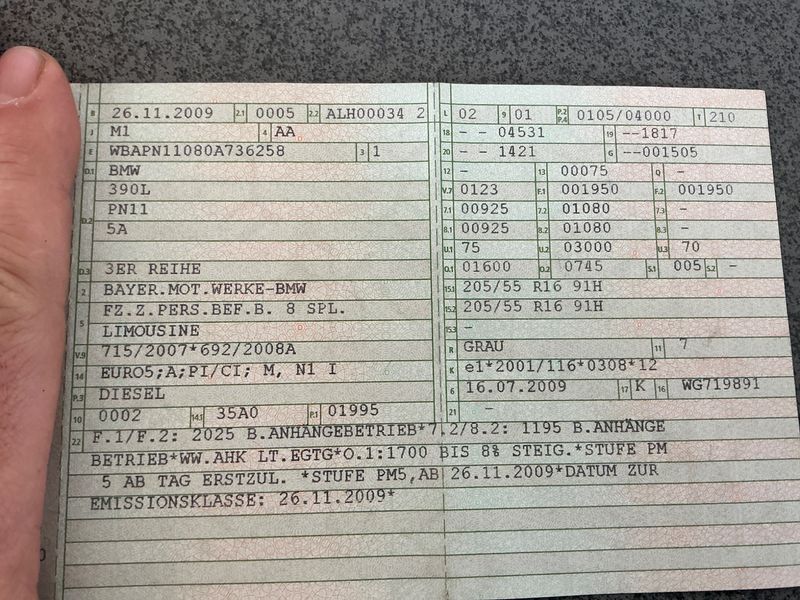 B 26.11.2009 2.1 0005 2.2 ALH00034 2
J M1 4 AA
E WBAPN11080A736258 3 1
D.1 BMW
390L
D.2 PN11
5A
D.3 3ER REIHE
2 BAYER.MOT.WERKE-BMW
5 FZ.Z.PERS.BEF.B. 8 SPL.
LIMOUSINE
V.9 715/2007*692/2008A
14 EURO5;A;PI/CI; M, N1 I
P.3 DIESEL
10 0002 14.1 35A0 P.1 01995
L 02 9 01 P.2 P.4 0105/04000 T 210
18 - - 04531 19 --1817
20 - - 1421 G --001505
12 - 13 00075 Q -
V.7 0123 F.1 001950 F.2 001950
7.1 00925 7.2 01080 7.3 -
8.1 00925 8.2 01080 8.3 -
U.1 75 U.2 03000 U.3 70
O.1 01600 O.2 0745 S.1 005 S.2 -
15.1 205/55 R16 91H
15.2 205/55 R16 91H
15.3 -
R GRAU 11 7
K e1*2001/116*0308*12
6 16.07.2009 17 K 16 WG719891
21 -
22 F.1/F.2: 2025 B.ANHÄNGEBETRIEB*7.2/8.2: 1195 B.ANHÄNGE
BETRIEB*WW.AHK LT.EGTG*O.1:1700 BIS 8% STEIG.*STUFE PM
5 AB TAG ERSTZUL. *STUFE PM5,AB 26.11.2009*DATUM ZUR
EMISSIONSKLASSE: 26.11.2009*